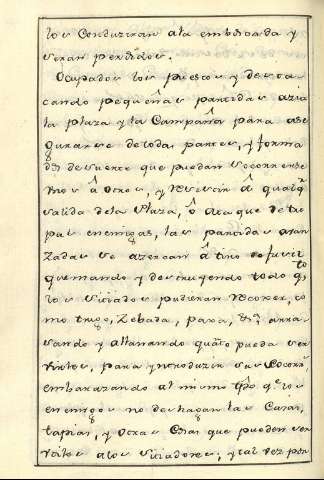 los Conduziran ala emboscada y
seran perdidos.
Ocupados los puestos y desta
cando pequeñas partidas azia
la plaza y la Campaña para ase
gurarse de todas partes, y forma
dos de suerte que puedan socorrerse
Unos â Otros, y resistir â qualqr
salida dela Plaza, ô Ataque de tro
pas enemigas, las partidas avan
zadas se azercan â tiro de fusil
quemando y destruyendo todo qto
los Sitiados pudieran recoxer, co
mo trigo, Zebada, paxa, &a, arra
sando y allanando quãto pueda ser
virlos, para yntroduzir sus Socorrs
embarazando al mismo tpo qe los
enemigos no deshagan las Casas,
tapias, y Otras Cosas que pueden ser
utiles alos sitiadores, y tal vez por